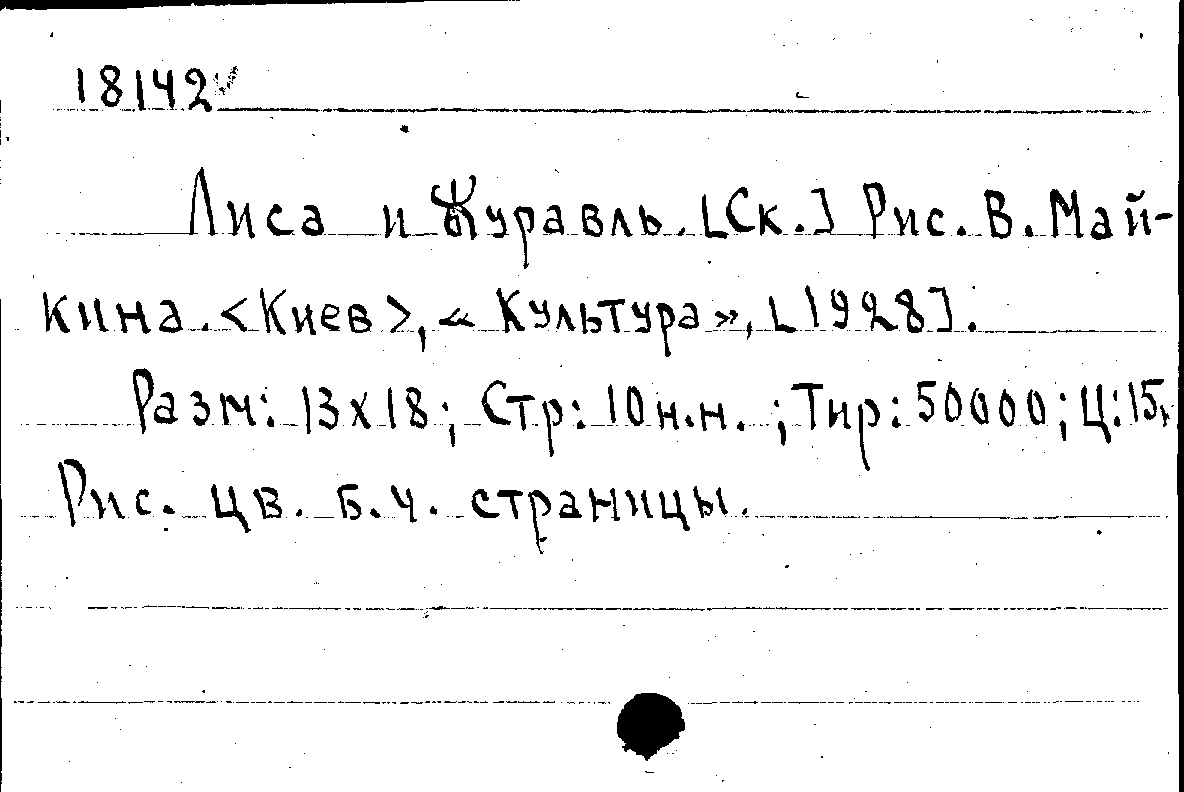 18142
Лиса и Журавль. [Ск.] Рис. В. Май-
кина. <Киев>, «Культура», [1928].
Разм: 13х18; Стр: 10 н.н. ; Тир: 50000; Ц: 15к
Рис. цв. б.ч. страницы.